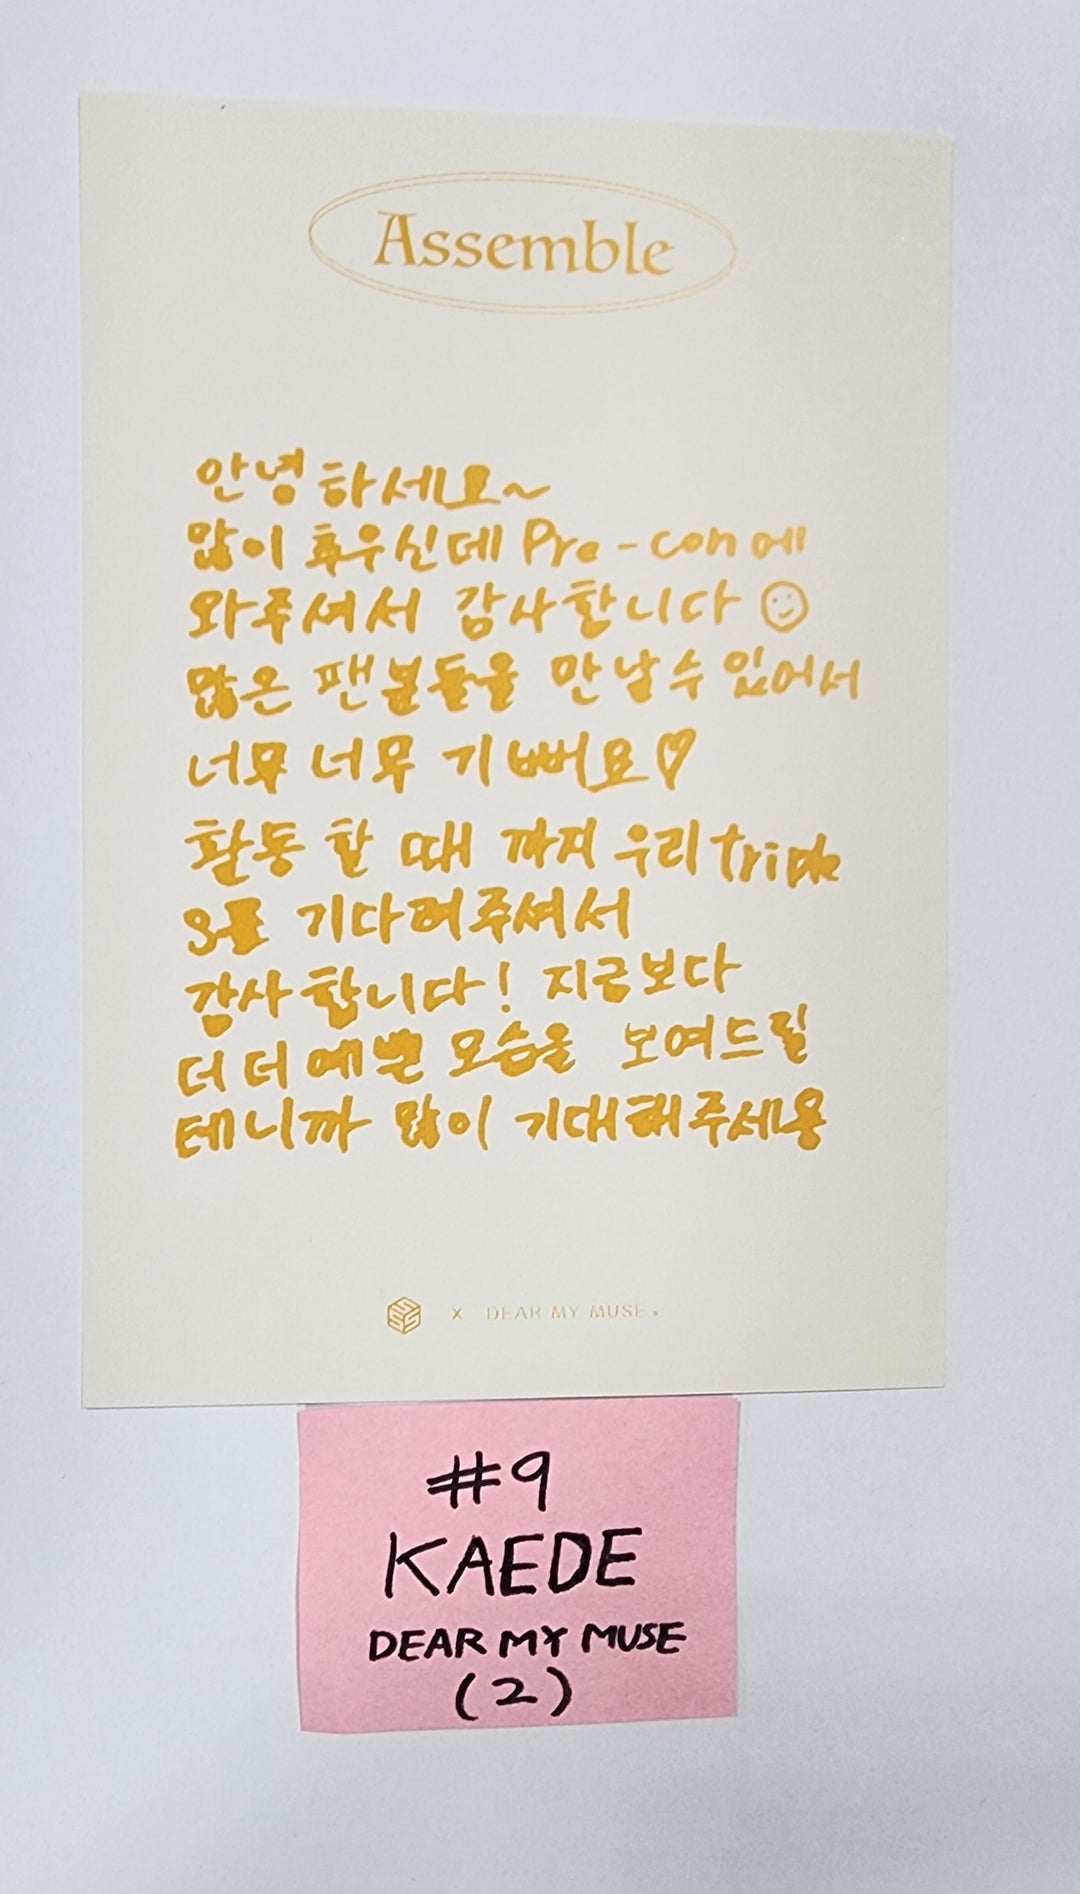 Assemble
안녕하세요~
많이 추우신데 Pre-con에
와주셔서 감사합니다
많은 팬분들을 만날수 있어서
너무 너무 기뻐요♡
활동 할 때 까지 우리 triple
S를 기다려주셔서
감사합니다! 지금보다
더 더 예쁜 모습을 보여드릴
테니까 많이 기대해주세용
SSS x DEAR MY MUSE.
#9
KAEDE
DEAR MY MUSE
(2)